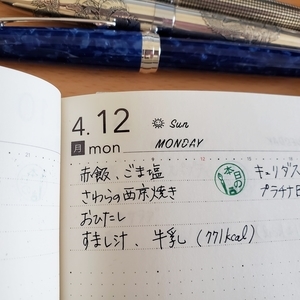 4. 12 Sun
月 mon MONDAY
赤飯、ごま塩
さわらの西京焼き
おひたし
すまし汁、牛乳 (771kcal)
本日の
キュリダス
プラチナ